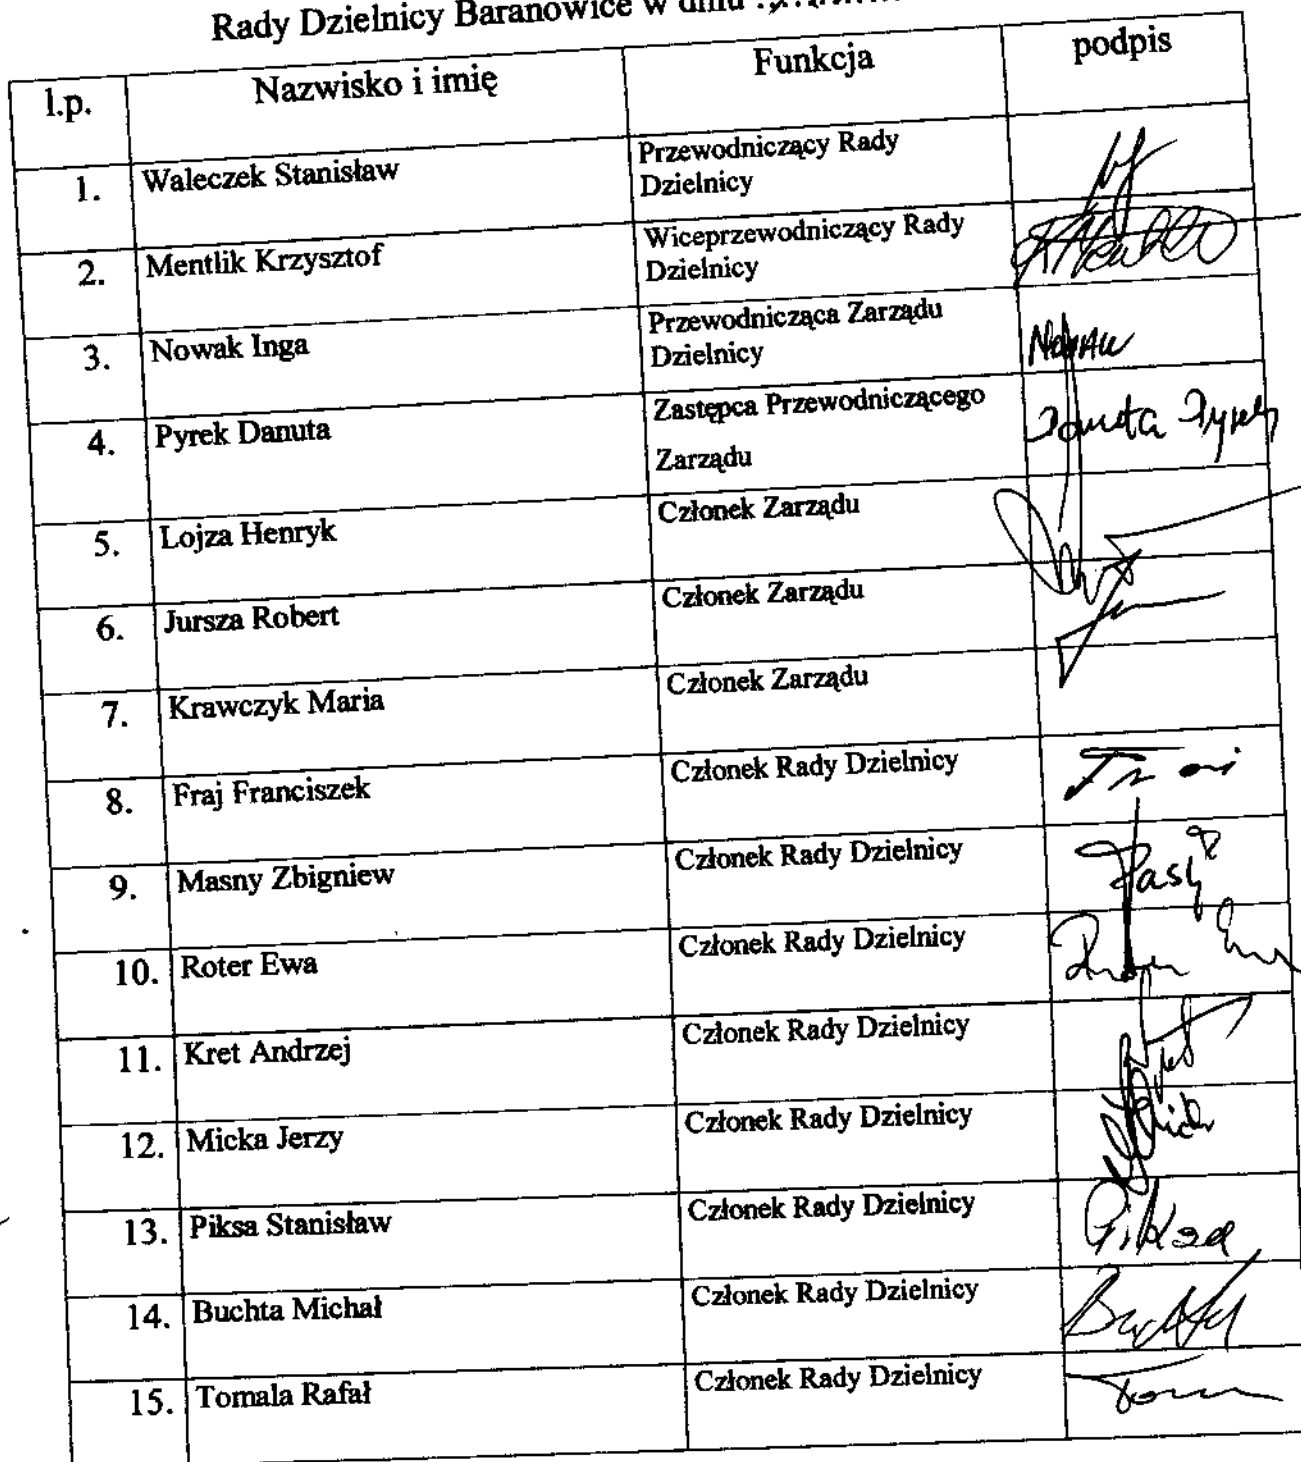 Rady Dzielnicy Baranowice w dniu
l.p. Nazwisko i imię Funkcja podpis
1. Waleczek Stanisław Przewodniczący Rady
Dzielnicy
2. Mentlik Krzysztof Wiceprzewodniczący Rady
Dzielnicy
3. Nowak Inga Przewodnicząca Zarządu
Dzielnicy Nowak
4. Pyrek Danuta Zastępca Przewodniczącego
Zarządu Danuta Pyrek
5. Lojza Henryk Członek Zarządu
6. Jursza Robert Członek Zarządu
7. Krawczyk Maria Członek Zarządu
8. Fraj Franciszek Członek Rady Dzielnicy
9. Masny Zbigniew Członek Rady Dzielnicy
10. Roter Ewa Członek Rady Dzielnicy
11. Kret Andrzej Członek Rady Dzielnicy
12. Micka Jerzy Członek Rady Dzielnicy
13. Piksa Stanisław Członek Rady Dzielnicy Piksa
14. Buchta Michał Członek Rady Dzielnicy
15. Tomala Rafał Członek Rady Dzielnicy